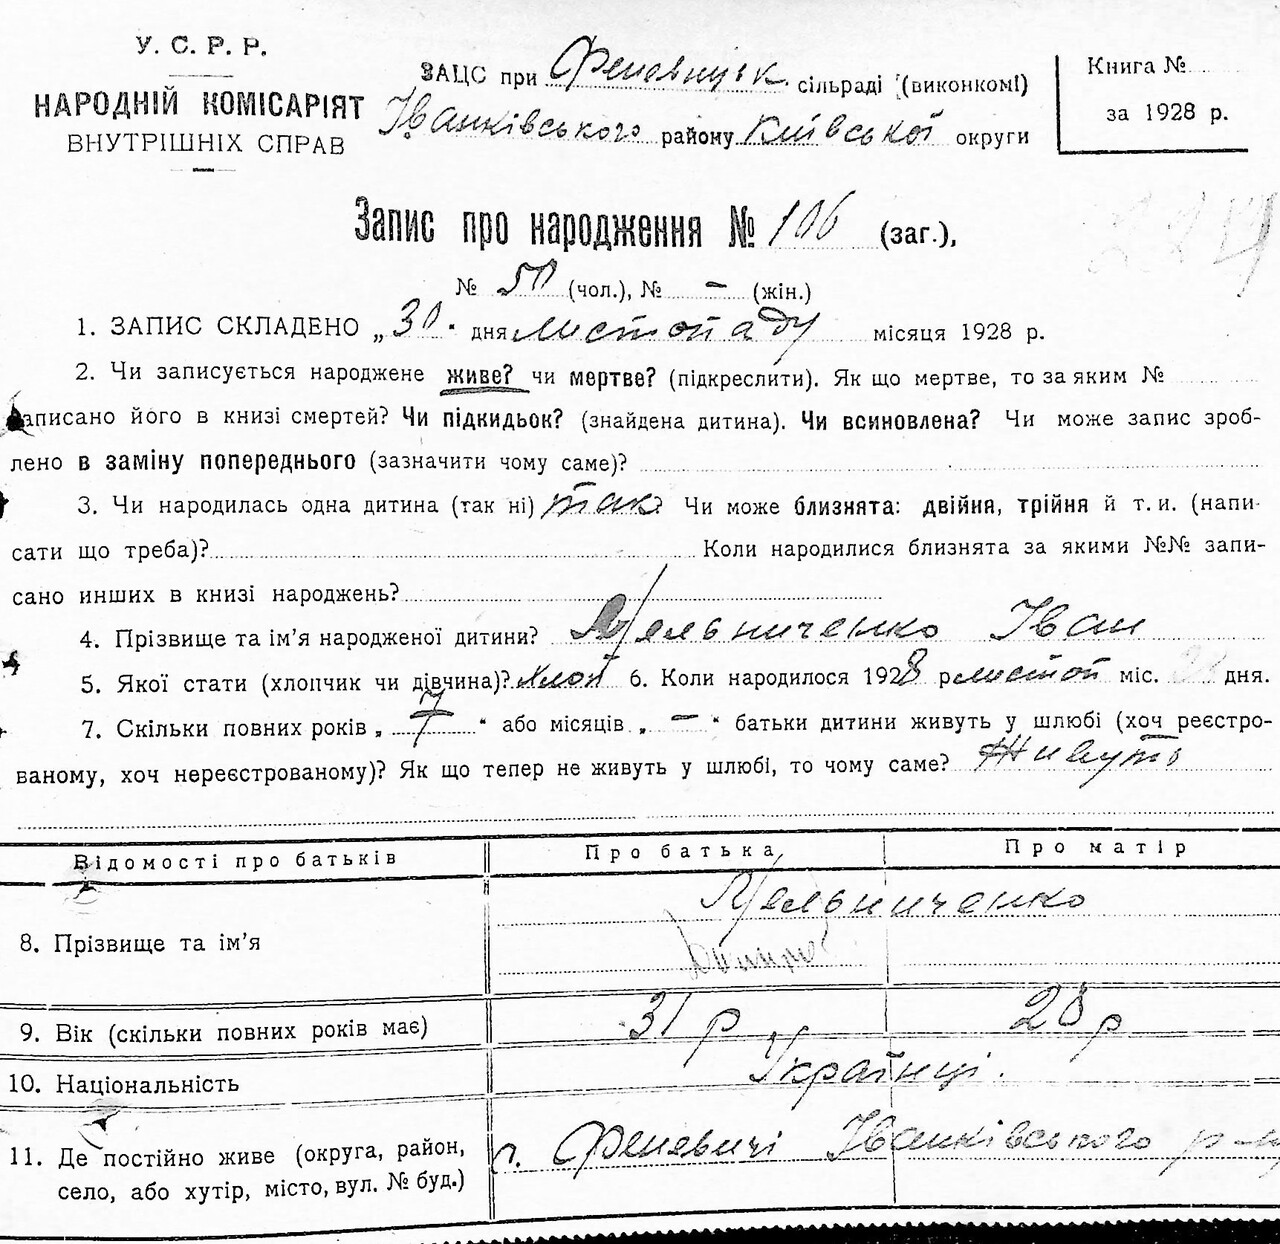 У. С. Р. Р.
НАРОДНІЙ КОМІСАРІЯТ
ВНУТРІШНІХ СПРАВ
ЗАЦС при Феневицьк. сільраді (виконкомі)
Іванківського району Київської округи
Книга №
за 1928 р.
Запис про народження № 106 (заг.),
№ 50 (чол.), № – (жін.)
1. ЗАПИС СКЛАДЕНО „ 30 " дня листопаду місяця 1928 р.
2. Чи записується народжене живе? чи мертве? (підкреслити). Як що мертве, то за яким №
записано його в книзі смертей? Чи підкидьок? (знайдена дитина). Чи всиновлена? Чи може запис зроб-
лено в заміну попереднього (зазначити чому саме)?
3. Чи народилась одна дитина (так ні) так? Чи може близнята: двійня, трійня й т. и. (напи-
сати що треба)? Коли народилися близнята за якими №№ запи-
сано инших в книзі народжень?
4. Прізвище та ім'я народженої дитини? Мельниченко Іван
5. Якої статі (хлопчик чи дівчина)? хлоп 6. Коли народилося 1928 р листоп міс. дня.
7. Скільки повних років „ 7 " або місяців „ – " батьки дитини живуть у шлюбі (хоч реєстро-
ваному, хоч нереєстрованому)? Як що тепер не живуть у шлюбі, то чому саме? Живуть
Відомості про батьків Про батька Про матір
Мельниченко
8. Прізвище та ім'я
9. Вік (скільки повних років має) 31 р 28 р
10. Національність Українці.
11. Де постійно живе (округа, район, с. Феневичі Іванківського р-ну
село, або хутір, місто, вул. № буд.)